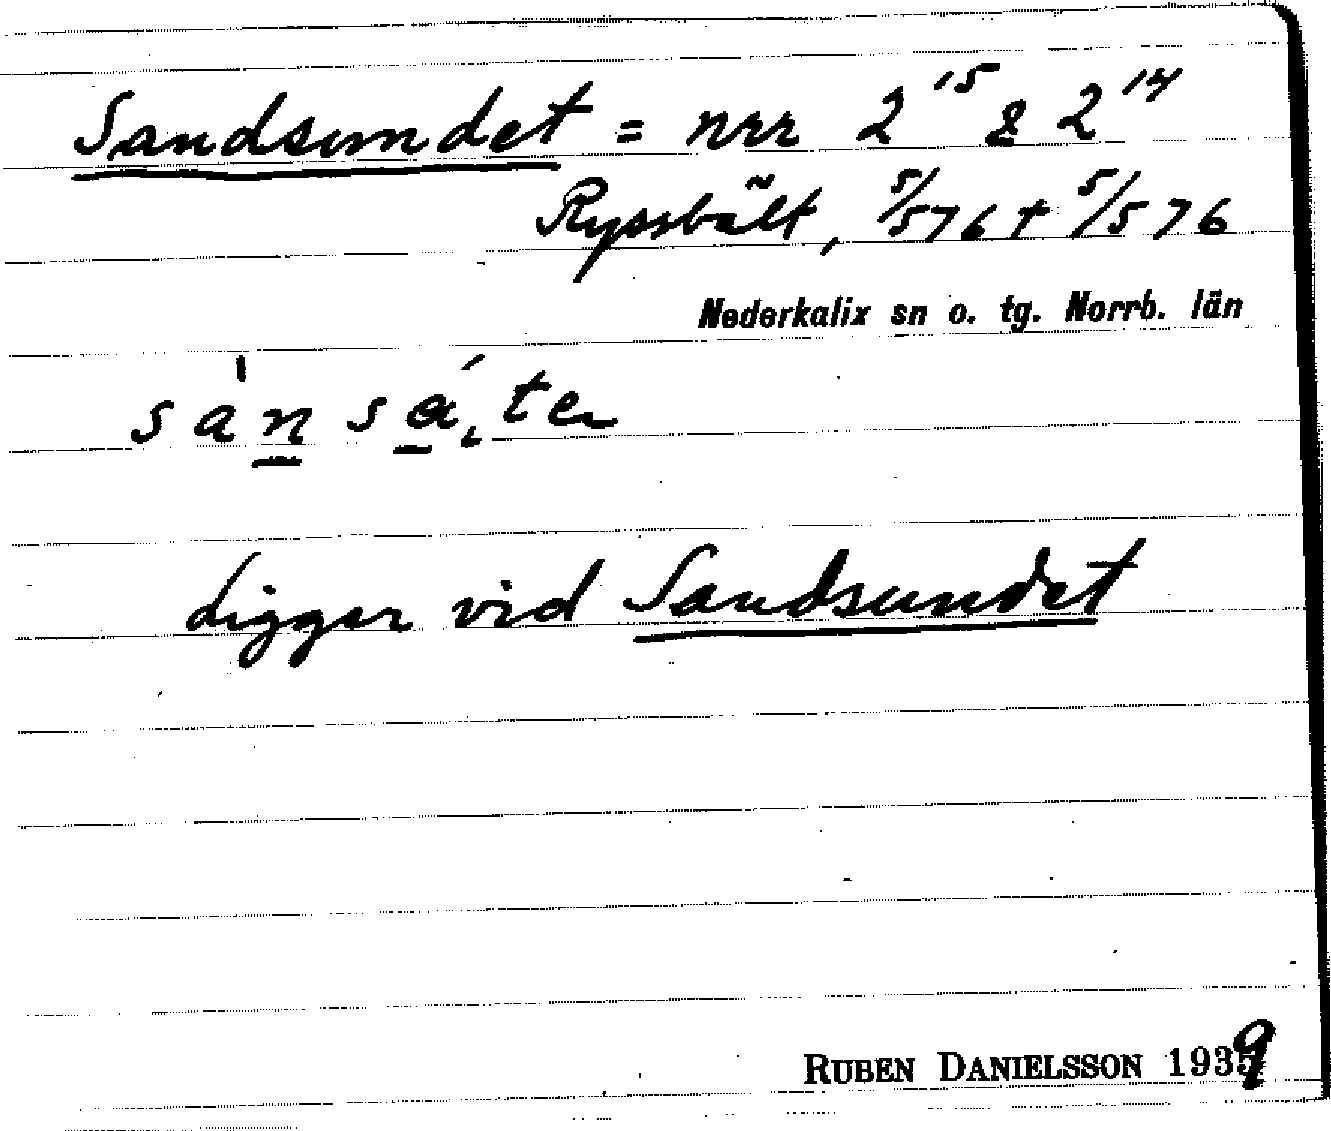 Sandsundet = nrr 2¹⁵ & 2¹⁴
Ryssbält, 5/576 + 5/576
Nederkalix sn o. tg. Norrb. län
Ligger vid Sandsundet
RUBEN DANIELSSON 1939